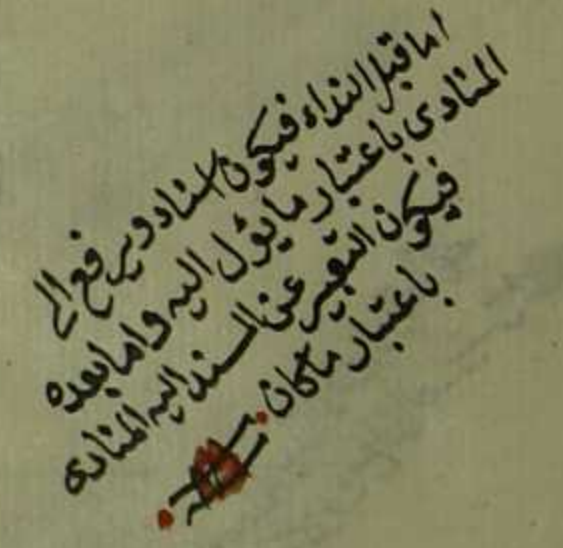 اما قبل النداء فيكون اسناد ويرفع الى
المنادى باعتبار ما يؤل اليه واما بعده
فيكون التعبير عن المسند اليه المنادى
باعتبار ما كان